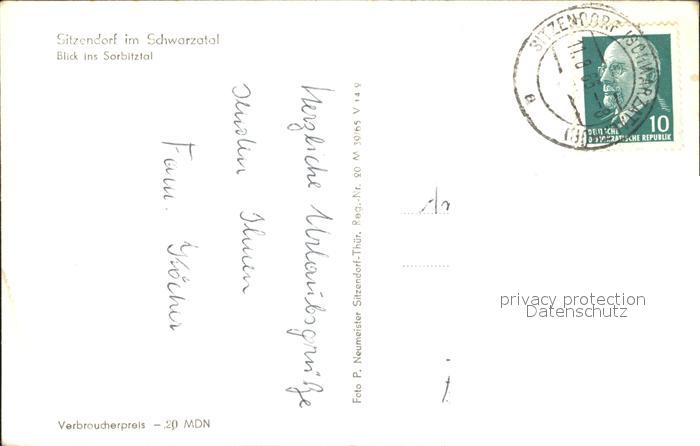 Sitzendorf im Schwarzatal
Blick ins Sorbitztal
Herzliche Urlaubsgrüße
senden Ihnen
Fam. Köcher
Foto P. Neumeister Sitzendorf-Thür. Reg.-Nr. 20 M 39/65 V 14 9
SITZENDORF (SCHWARZATAL)
a
10
DEUTSCHE
DEMOKRATISCHE REPUBLIK
privacy protection
Datenschutz
Verbraucherpreis –.20 MDN